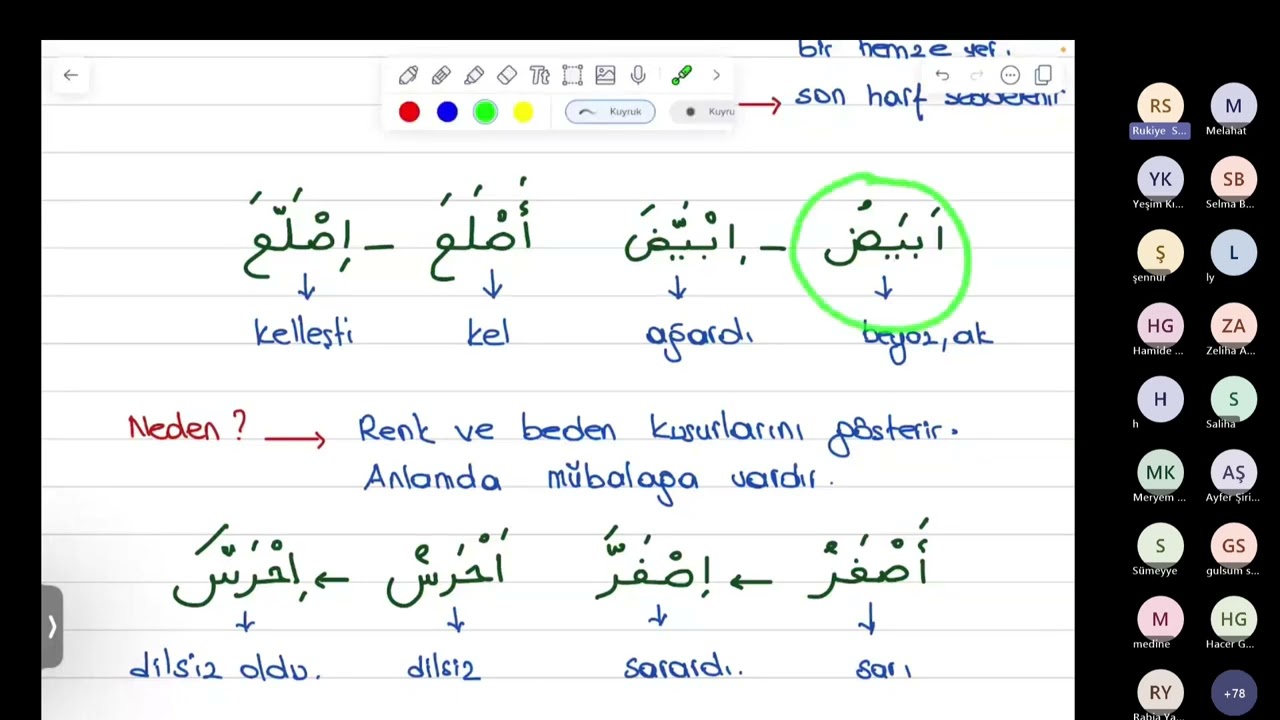 bir hemze yer.
→ son harf
Kuyruk Kuyru
أَبيَضُ – اِبْيَضَّ أَصْلَعَ – اِصْلَعَّ
↓ ↓ ↓ ↓
beyaz, ak ağardı kel kelleşti
Neden? → Renk ve beden kusurlarını gösterir.
Anlamda mübalağa vardır.
أَصْفَرُ ← اِصْفَرَّ أَخْرَسُ ← اِخْرَسَّ
↓ ↓ ↓ ↓
sarı sarardı. dilsiz dilsiz oldu.
RS M
Rukiye S... Melahat
YK SB
Yeşim Kı... Selma B...
Ş L
şennur ly
HG ZA
Hamide ... Zeliha A...
H S
h Saliha
MK AŞ
Meryem ... Ayfer Şiri...
S GS
Sümeyye gulsum s...
M HG
medine Hacer G...
RY +78
Rabia Ya...